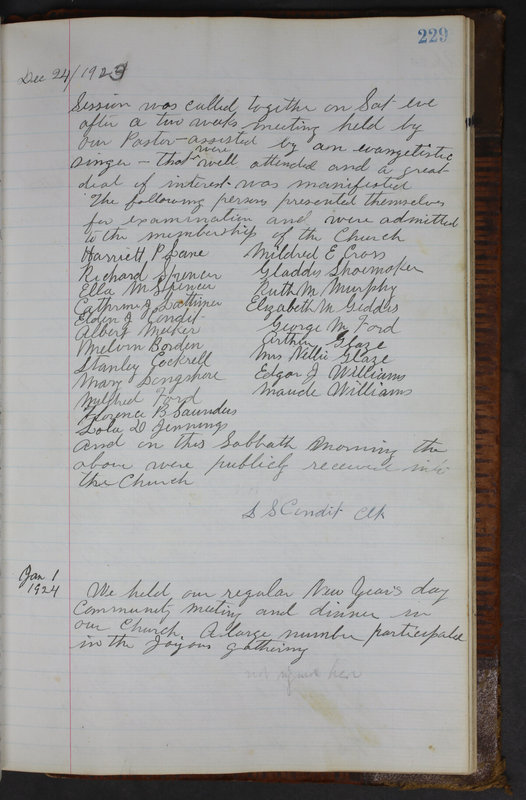 229
Dec 24/1923
Session was called together on Sat eve
after a two weeks meeting held by
our Pastor - assisted by an evangelistic
singer - that were well attended and a great
deal of interest was manifested
The following persons presented themselves
for examination and were admitted
to the membership of the Church
Harriett P Lane Mildred E Cross
Richard Spencer Gladdis Shoemaker
Ella M Spencer Ruth M Murphy
Catherine J Latimer Elizabeth M Geddis
Elden J Condit George M Ford
Albert Meeker Arthur Glaze
Melvin Borden Mrs Nellie Glaze
Stanley Cockrell Edgar J Williams
Mary Longshore Maude Williams
Mildred Ford
Florence B Saunders
Lola D Jennings
And on this Sabbath Morning the
above were publicly received into
the Church
S S Condit Clk
Jan 1
1924
We held our regular New Years day
Community meeting and dinner in
our Church. A large number participated
in the Joyous gathering
not here